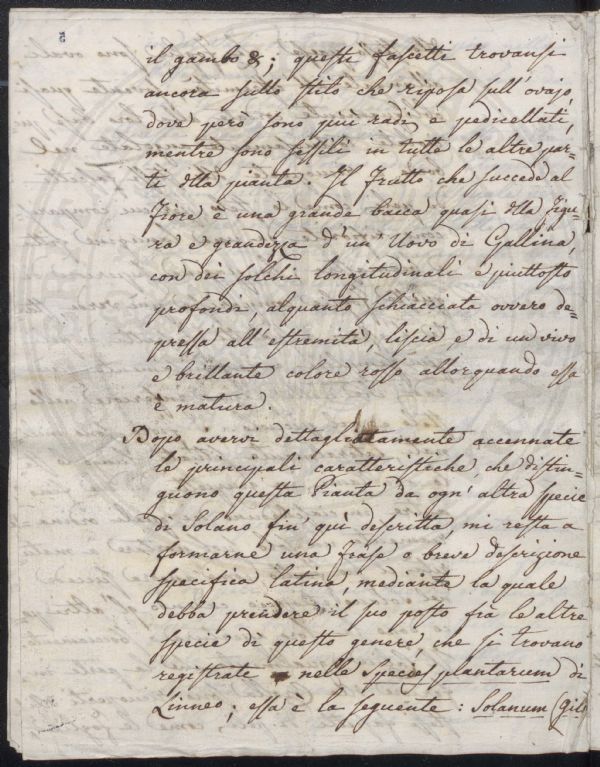 5
il gambo &; questi fascetti trovansi
ancora sullo stilo che riposa sull'ovajo,
dove però sono più radi, e pedicellati,
mentre sono sessili in tutte le altre par=
ti della pianta. Il Frutto che succede al
Fiore è una grande bacca quasi della Figu=
ra e grandezza d'un'Uovo di Gallina,
con dei solchi longitudinali e piuttosto
profondi, alquanto schiacciata ovvero de=
pressa all'estremità, liscia e di un vivo
e brillante colore rosso allorquando essa
è matura.
Dopo avervi dettagliatamente accennate
le principali caratteristiche che distin=
guono questa Pianta da ogn'altra specie
di Solano fin' quì descritta, mi resta a
formarne una Frase o breve descrizione
specifica latina, mediante la quale
debba prendere il suo posto frà le altre
specie di questo genere, che si trovano
registrate nelle Species plantarum di
Linneo; essa è la seguente: Solanum (Gil